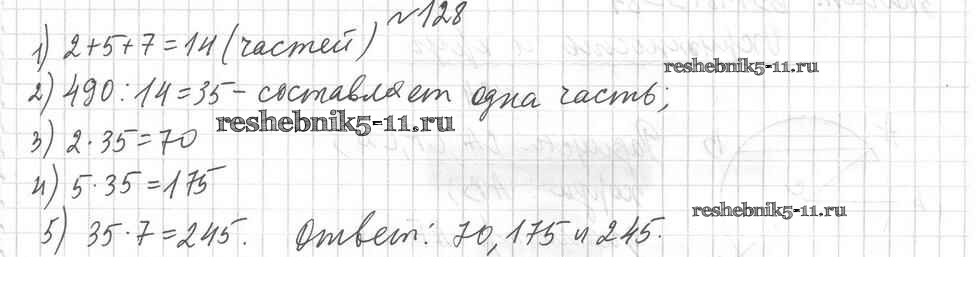 №128
1) 2+5+7=14 (частей)
reshebnik5-11.ru
2) 490:14=35 - составляет одна часть;
reshebnik5-11.ru
3) 2·35=70
4) 5·35=175
5) 35·7=245. Ответ: 70, 175 и 245.
reshebnik5-11.ru